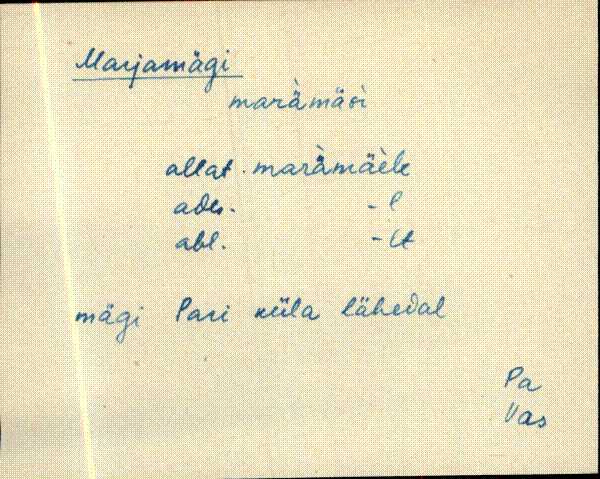 Marjamägi
maràmäsì
allat. maràmäèle
ades. -l
abl. -lt
mägi Pari küla lähedal
Pa
Vas